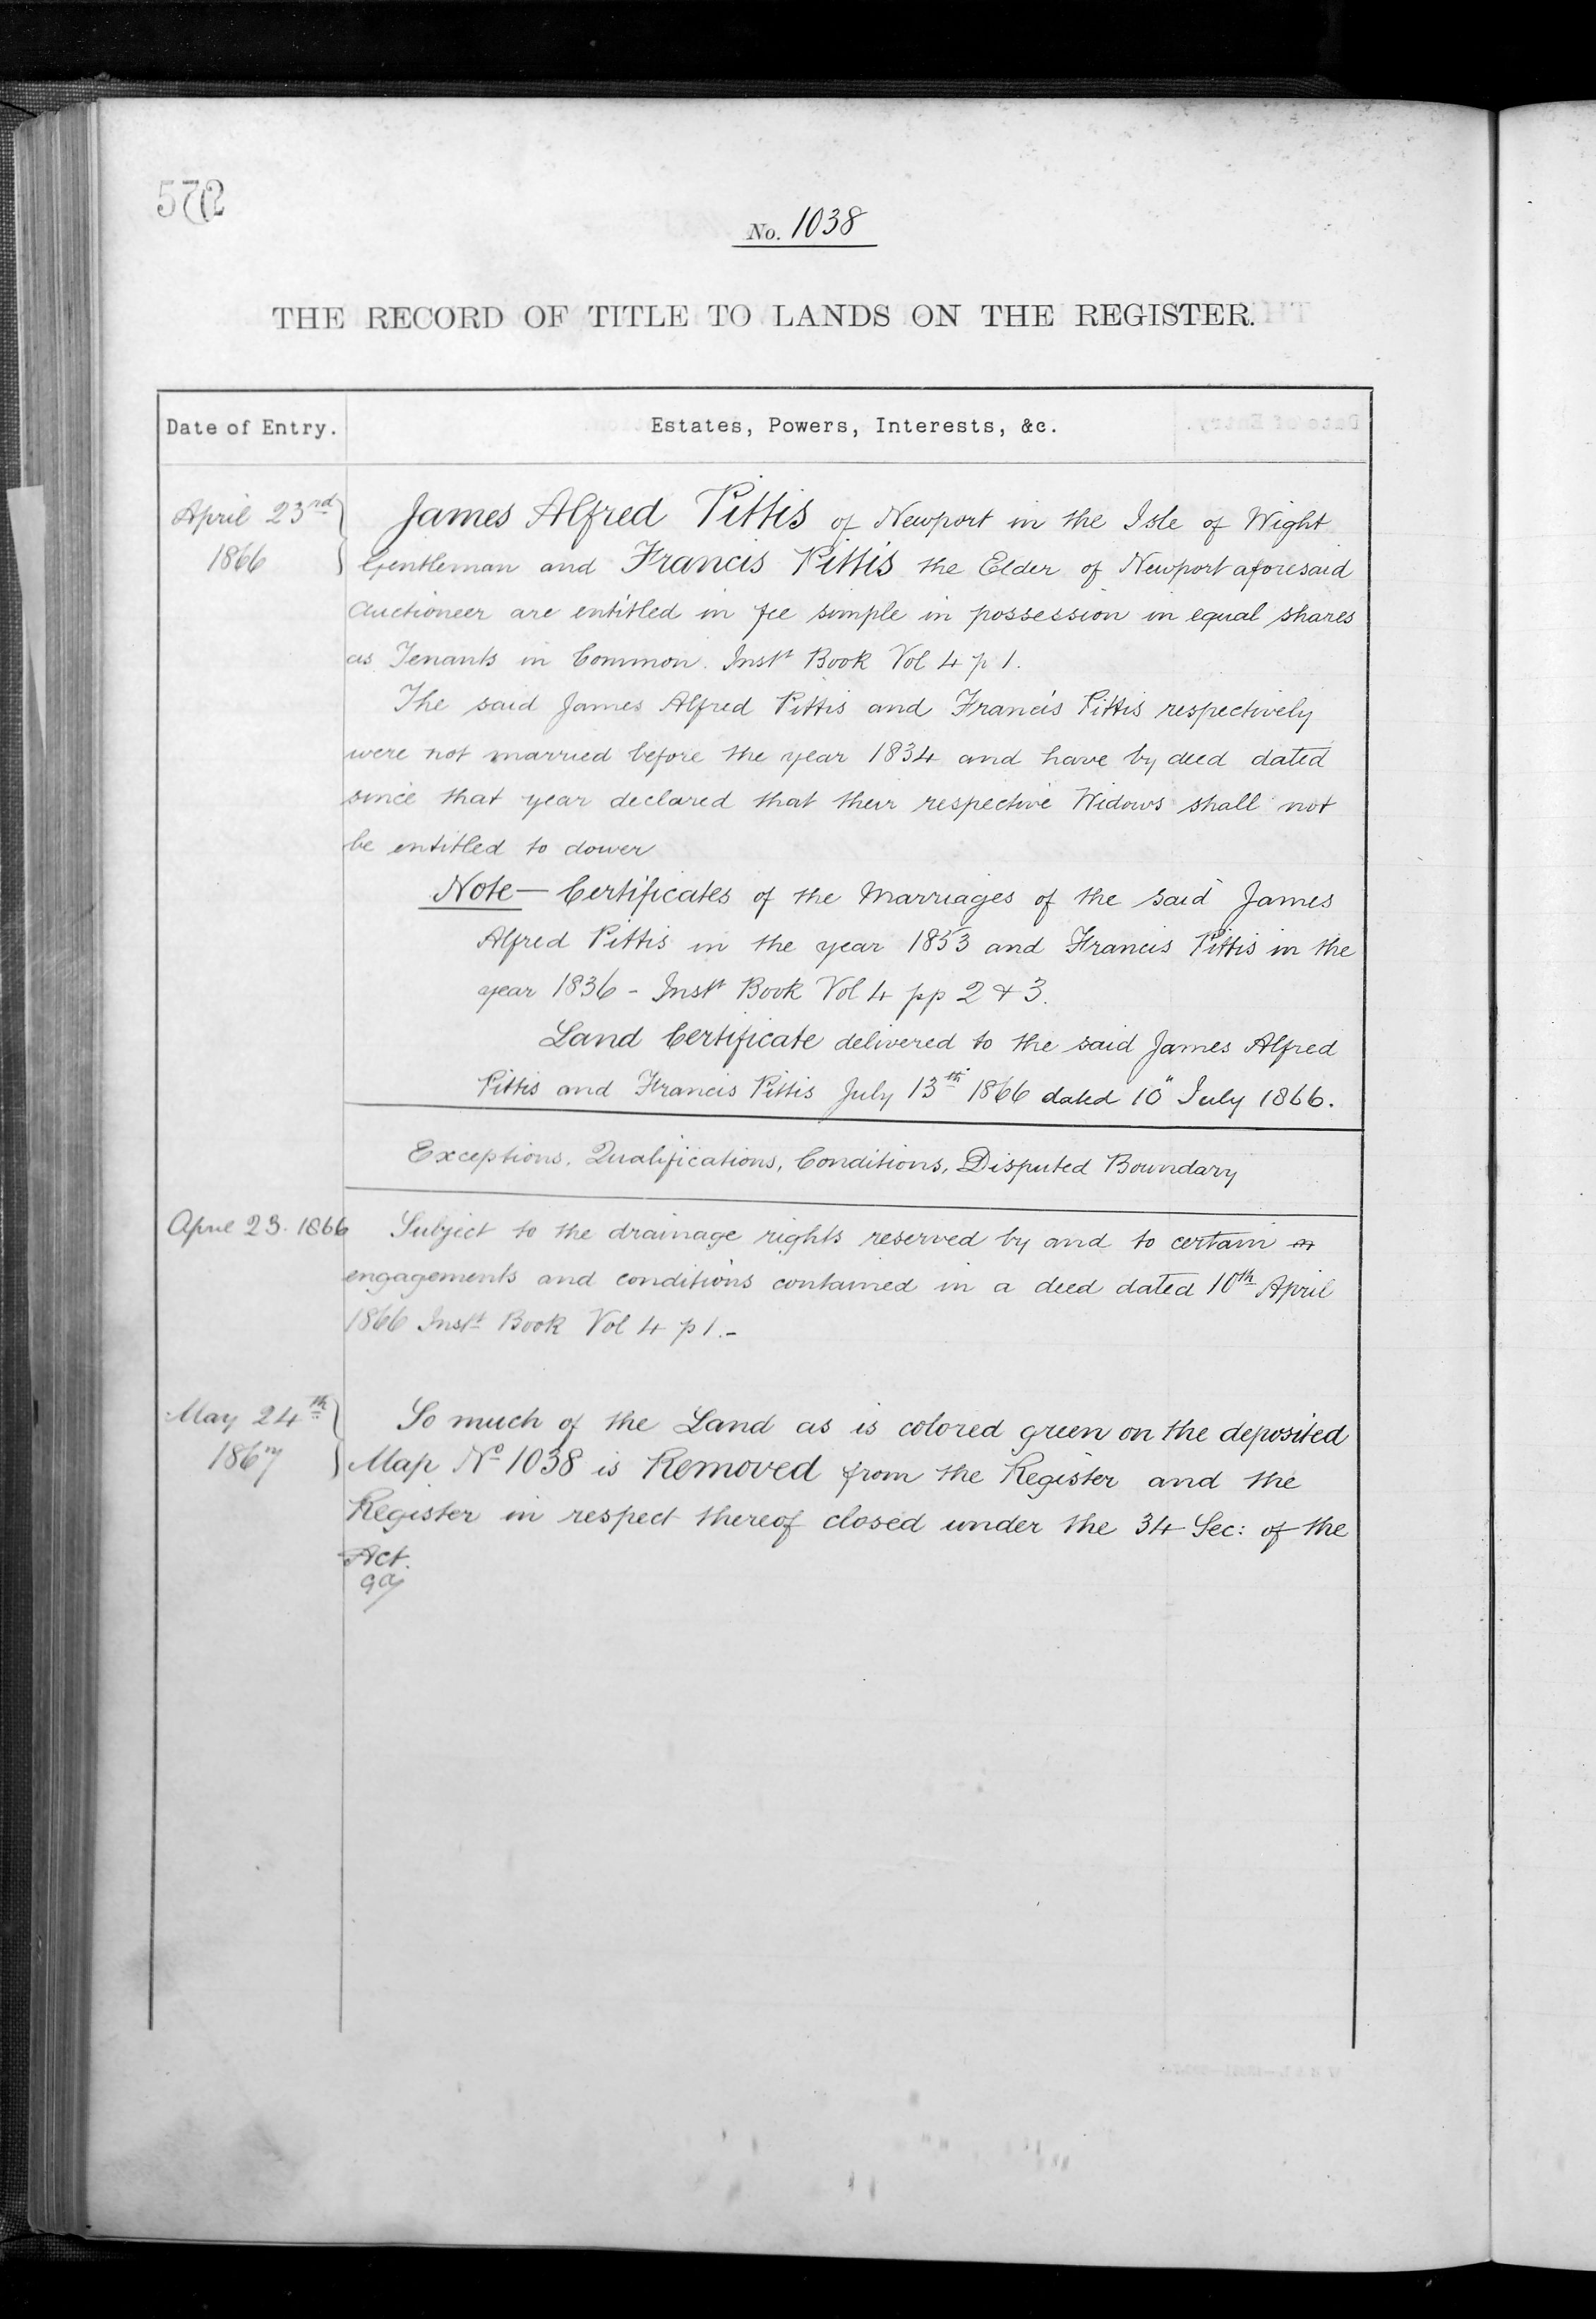 572
No. 1038
THE RECORD OF TITLE TO LANDS ON THE REGISTER.
Date of Entry.
Estates, Powers, Interests, &c.
April 23rd
1866
James Alfred Pittis of Newport in the Isle of Wight
Gentleman and Francis Pittis the Elder of Newport aforesaid
Auctioneer are entitled in fee simple in possession in equal shares
as Tenants in Common. Instt Book Vol 4 p 1.
The said James Alfred Pittis and Francis Pittis respectively
were not married before the year 1834 and have by deed dated
since that year declared that their respective Widows shall not
be entitled to dower
Note — Certificates of the Marriages of the said James
Alfred Pittis in the year 1853 and Francis Pittis in the
year 1836 - Instt Book Vol 4 pp 2 & 3.
Land Certificate delivered to the said James Alfred
Pittis and Francis Pittis July 13th 1866 dated 10" July 1866.
Exceptions, Qualifications, Conditions, Disputed Boundary
April 23. 1866
Subject to the drainage rights reserved by and to certain
engagements and conditions contained in a deed dated 10th April
1866 Instt Book Vol 4 p 1. -
May 24th
1867
So much of the Land as is colored green on the deposited
Map No 1038 is Removed from the Register and the
Register in respect thereof closed under the 34 Sec: of the
Act.